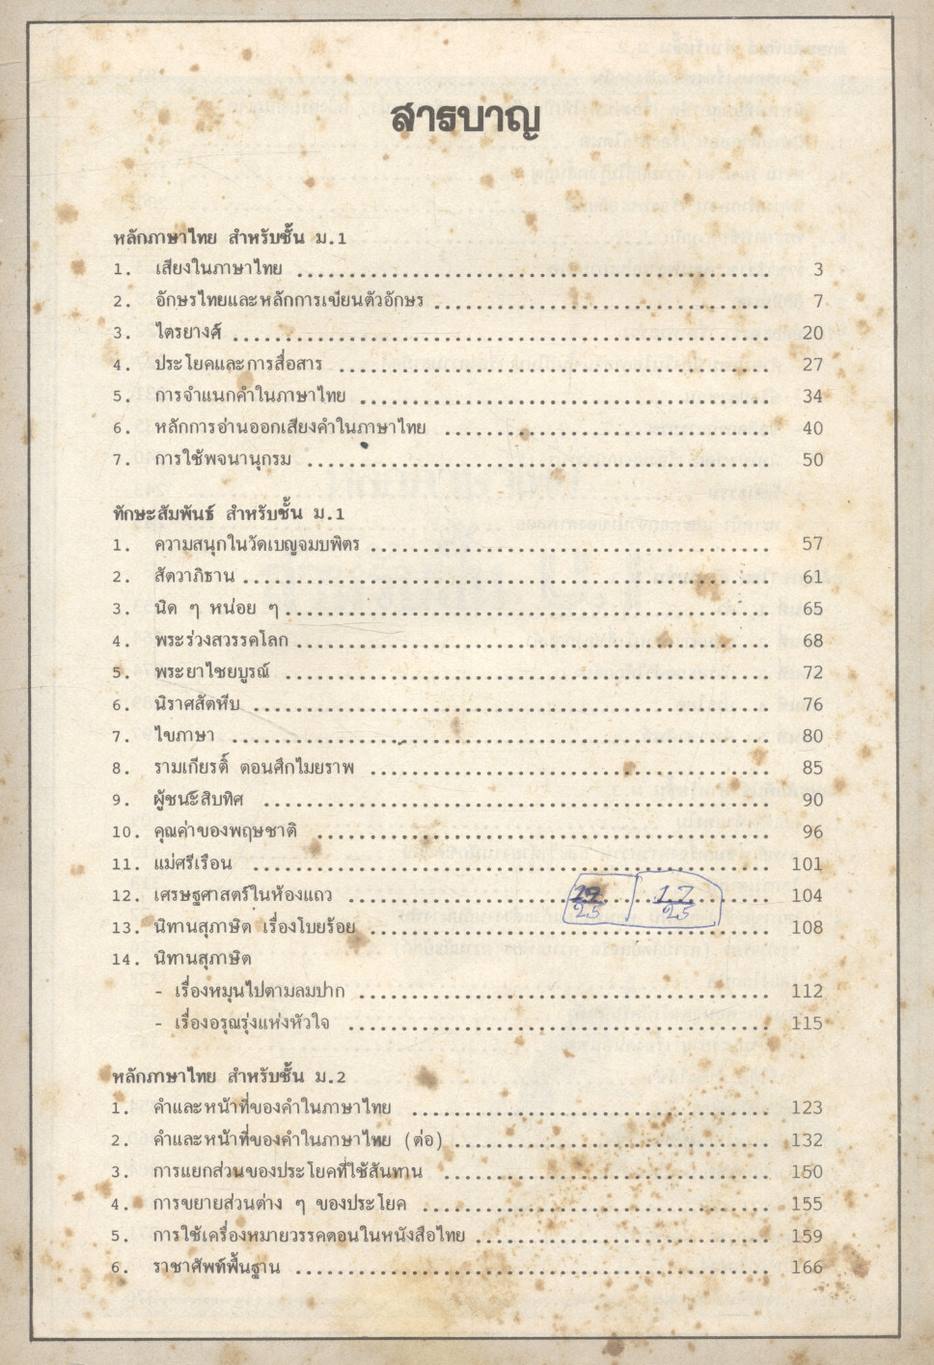 สารบาญ
หลักภาษาไทย สำหรับชั้น ม.1
1. เสียงในภาษาไทย ........ 3
2. อักษรไทยและหลักการเขียนตัวอักษร ........ 7
3. ไตรยางศ์ ........ 20
4. ประโยคและการสื่อสาร ........ 27
5. การจำแนกคำในภาษาไทย ........ 34
6. หลักการอ่านออกเสียงคำในภาษาไทย ........ 40
7. การใช้พจนานุกรม ........ 50
ทักษะสัมพันธ์ สำหรับชั้น ม.1
1. ความสนุกในวัดเบญจมบพิตร ........ 57
2. สัตวาภิธาน ........ 61
3. นิด ๆ หน่อย ๆ ........ 65
4. พระร่วงสวรรคโลก ........ 68
5. พระยาไชยบูรณ์ ........ 72
6. นิราศสัตหีบ ........ 76
7. ไขภาษา ........ 80
8. รามเกียรติ์ ตอนศึกไมยราพ ........ 85
9. ผู้ชนะสิบทิศ ........ 90
10. คุณค่าของพฤษชาติ ........ 96
11. แม่ศรีเรือน ........ 101
12. เศรษฐศาสตร์ในห้องแถว ........ 104
17
25
13. นิทานสุภาษิต เรื่องโบยร้อย ........ 108
14. นิทานสุภาษิต
- เรื่องหมุนไปตามลมปาก ........ 112
- เรื่องอรุณรุ่งแห่งหัวใจ ........ 115
หลักภาษาไทย สำหรับชั้น ม.2
1. คำและหน้าที่ของคำในภาษาไทย ........ 123
2. คำและหน้าที่ของคำในภาษาไทย (ต่อ) ........ 132
3. การแยกส่วนของประโยคที่ใช้สันทาน ........ 150
4. การขยายส่วนต่าง ๆ ของประโยค ........ 155
5. การใช้เครื่องหมายวรรคตอนในหนังสือไทย ........ 159
6. ราชาศัพท์พื้นฐาน ........ 166